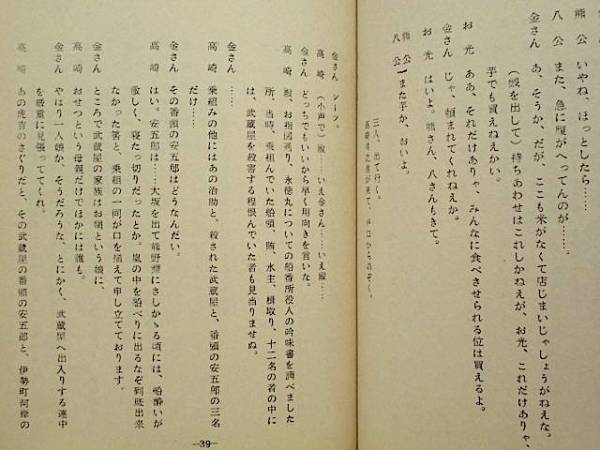 熊公　いやね、ほっとしたら……
八公　また、急に腹がへってんのが……。
金さん　あ、そうか、だが、ここも米がなくて店じまいじゃしょうがねえな。
（銭を出して）持ちあわせはこれしかねえが、お光、これだけありゃ、
芋でも買えねえかい。
お光　ああ、それだけありゃ、みんなに食べさせられる位は買えるよ。
金さん　じゃ、頼まれてくれねえか。
お光　はいよ。熊さん、八さんもきて。
熊公
八公　また芋か、おいよ。
三人、出て行く。
金さん　シーッ。
高崎　（小声で）殿……いえ金さん……いえ殿……
金さん　どっちでもいいから早く用向きを言いな。
高崎　殿、お指図通り、永徳丸についての船番所役人の吟味書を調べました
所、当時、乗組んでいた船頭、賄、水主、楫取り、十二名の者の中に
は、武蔵屋を殺害する程恨んでいた者も見当りませぬ。
金さん　……
高崎　乗組みの他にはあの治助と、殺された武蔵屋と、番頭の安五郎の三名
だけ……
金さん　その番頭の安五郎はどうなんだい。
高崎　はい。安五郎は……大坂を出て熊野灘にさしかゝる頃には、船酔いが
激しく、寝たっ切りだったとか。嵐の中を船べりに出るなぞ到底出来
なかった筈と、乗組の一同が口を揃えて申し立てております。
金さん　ところで武蔵屋の家族はお絹という娘に、
高崎　おせつという母親だけでほかには誰も。
金さん　やはり一人娘か、そうだろうな、とにかく、武蔵屋へ出入りする連中
を厳重に見張っててくれ。
高崎　あの虎吉のさぐりだと、その武蔵屋の番頭の安五郎と、伊勢町河岸の
—39—